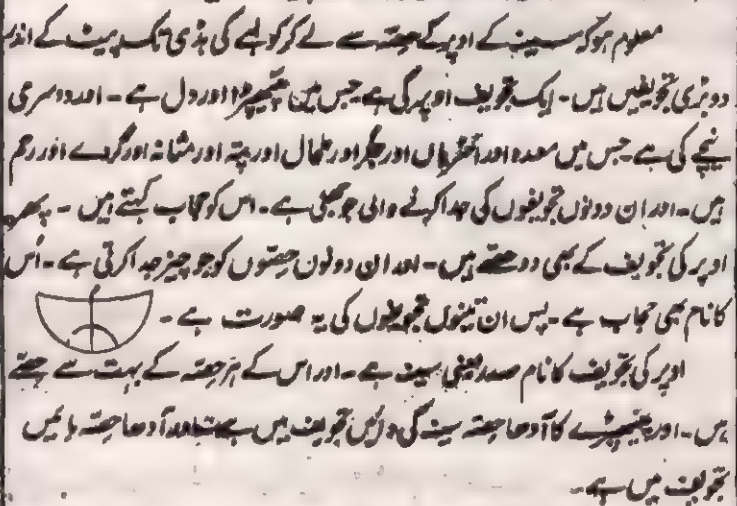 معلوم ہو کہ سینہ کے اوپر کے حصہ سے لے کر کولہے کی ہڈی تک پیٹ کے اندر
دو بڑی تجویفیں ہیں۔ ایک تجویف اوپر کی ہے جس مین پھیپھڑا اور دل ہے۔ اور دوسری
نیچے کی ہے جس میں معدہ اور انتڑیاں اور جگر اور طحال اور پتہ اور مثانہ اور گردے اور رحم
ہیں۔ اور ان دونوں تجویفوں کی جدا کرنے والی جو جھلی ہے۔ اس کو حجاب کہتے ہیں۔ پھر
اوپر کی تجویف کے بھی دو حصے ہیں۔ اور ان دونون حصّوں کو جو چیز جدا کرتی ہے۔ اُس
کا نام بھی حجاب ہے۔ پس ان تینوں تجویفوں کی یہ صورت ہے۔
اوپر کی تجویف کا نام صدر یعنی سینہ ہے۔ اور اس کے ہر حصّہ کے بہت سے حصّے
ہیں۔ اور پھیپھڑے کا آدھا حصّہ سینہ کی دائیں تجویف میں ہے اور آدھا حصّہ بائیں
تجویف میں ہے۔